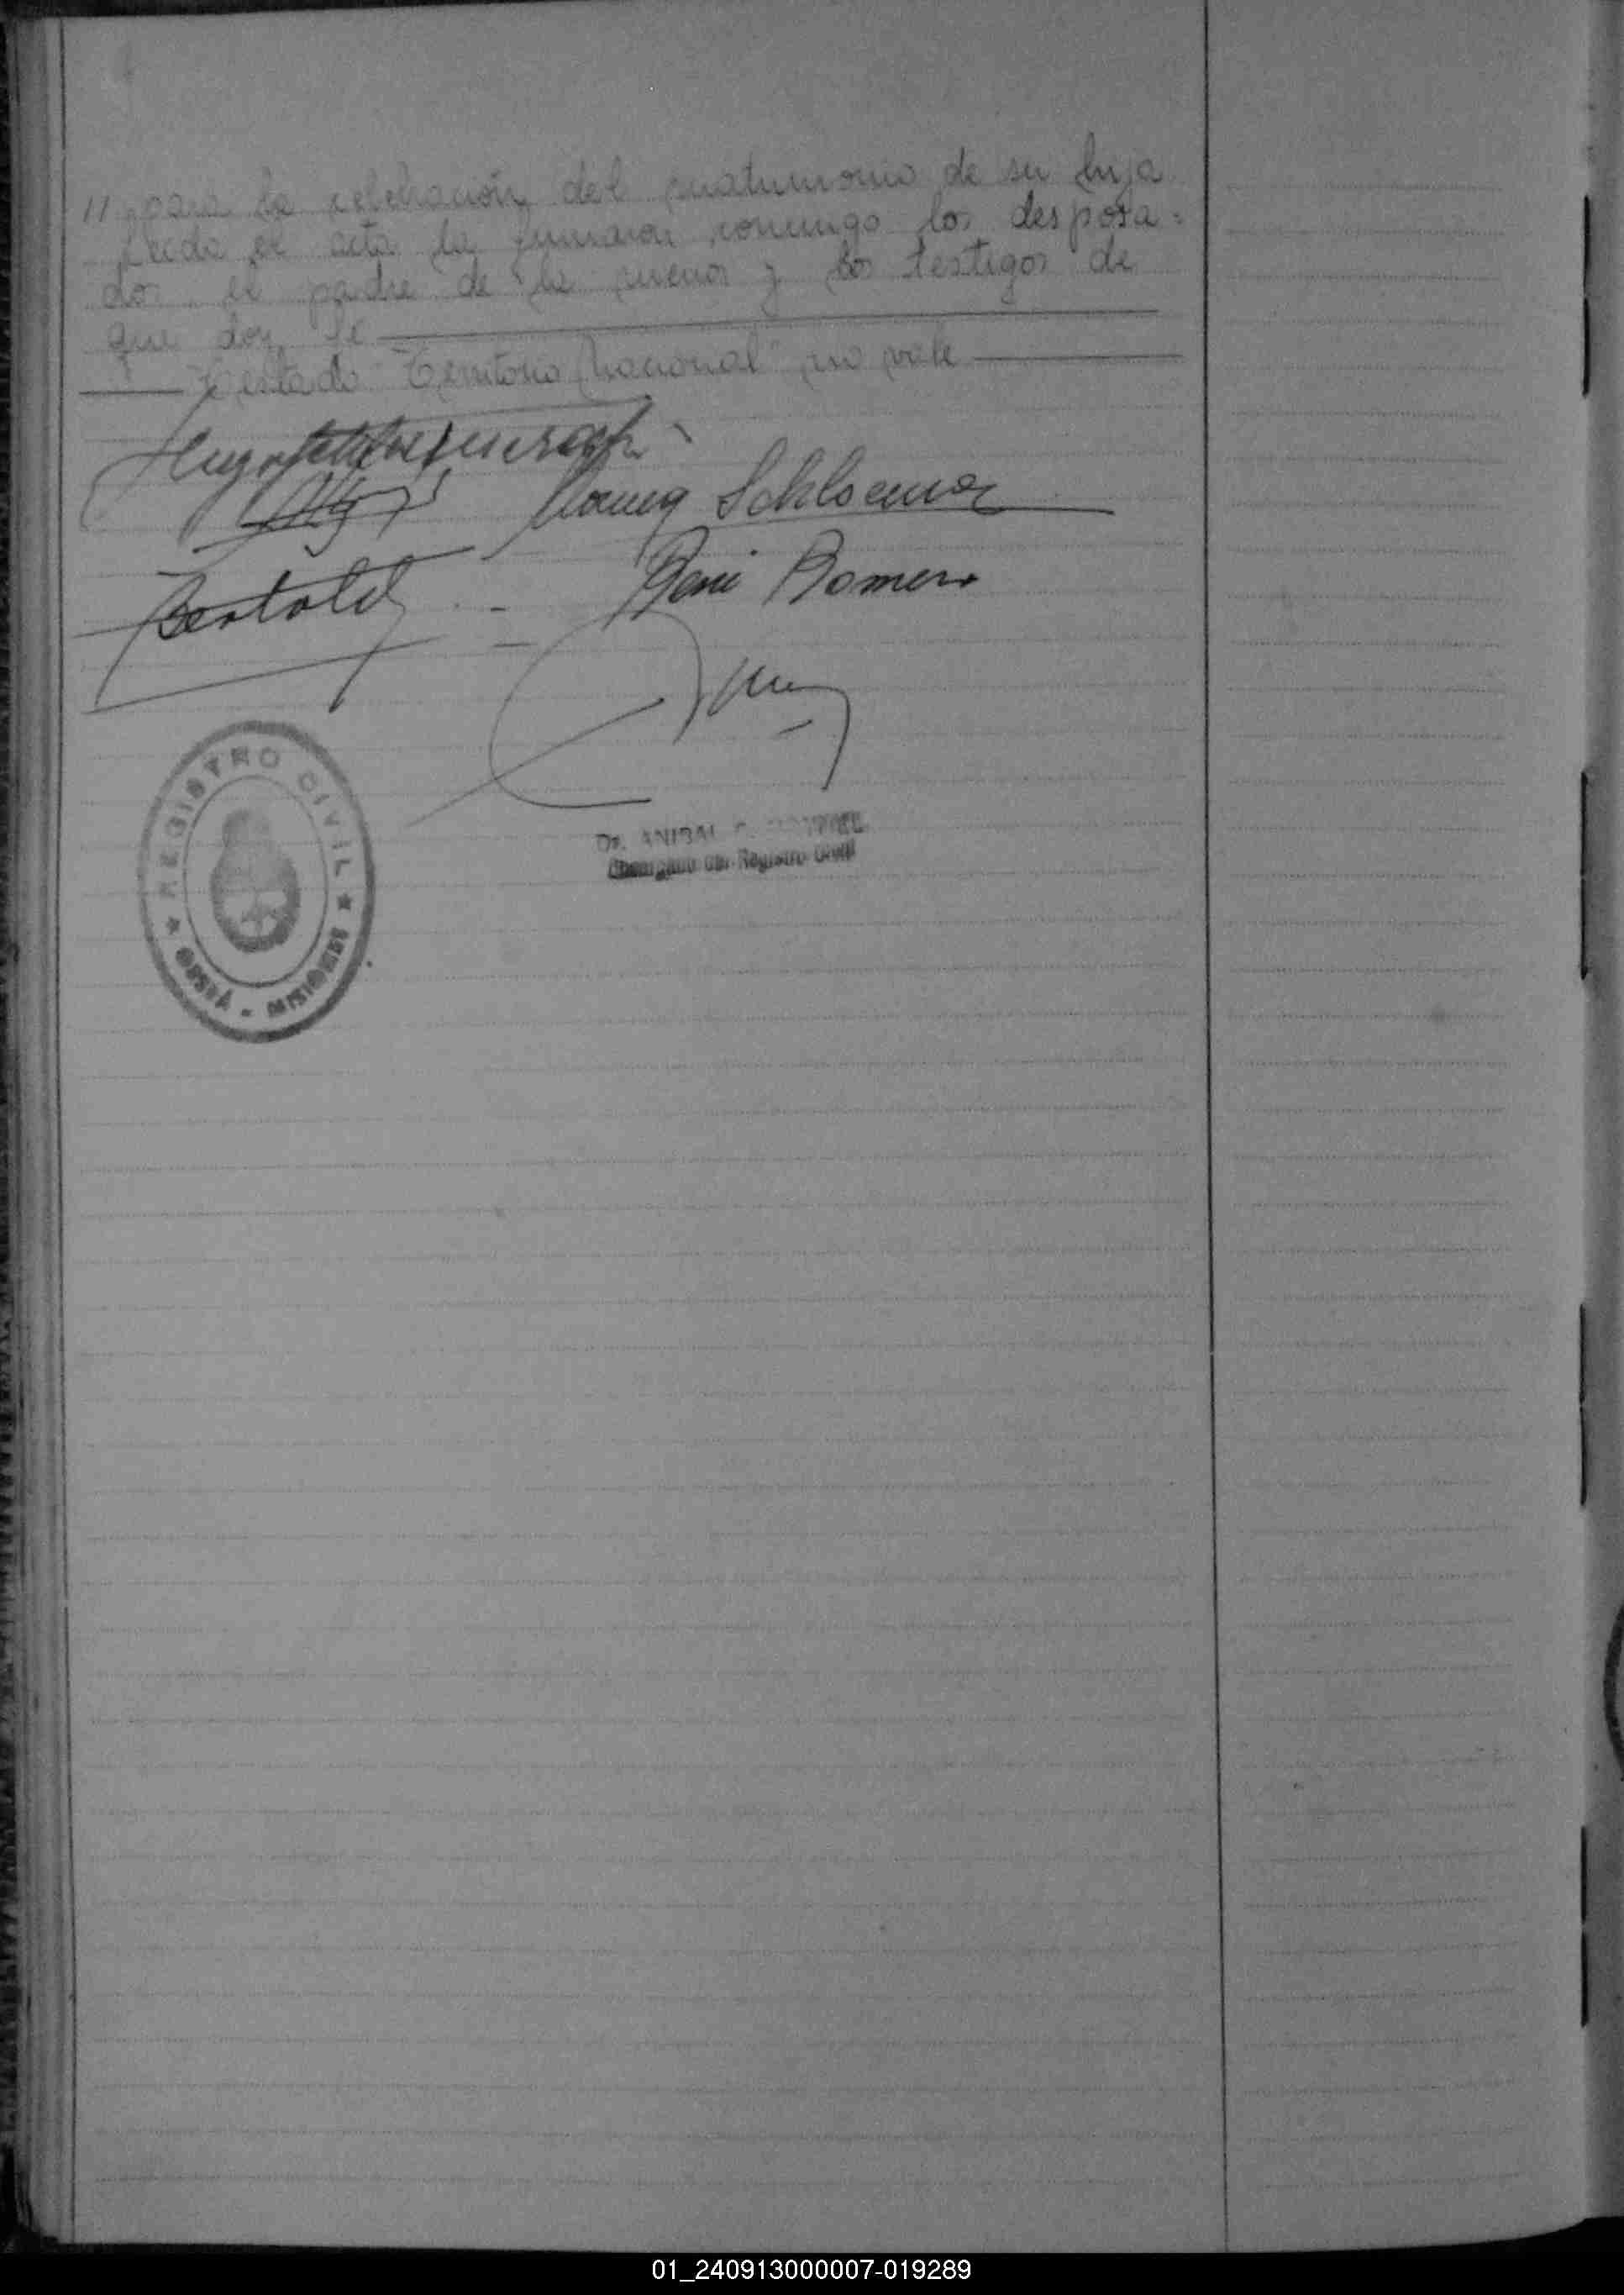 // para la celebración del matrimonio de su hija
Leida el acta la firmaron conmigo los desposa=
dos el padre de la menor y los testigos de
que doy fe
Testado "Territorio Nacional" no vale
Hugo
Schloemer
Bertold
Romero
REGISTRO CIVIL
OBERÁ - MISIONES
Dr. ANIBAL
Encargado del Registro Civil
01_240913000007-019289